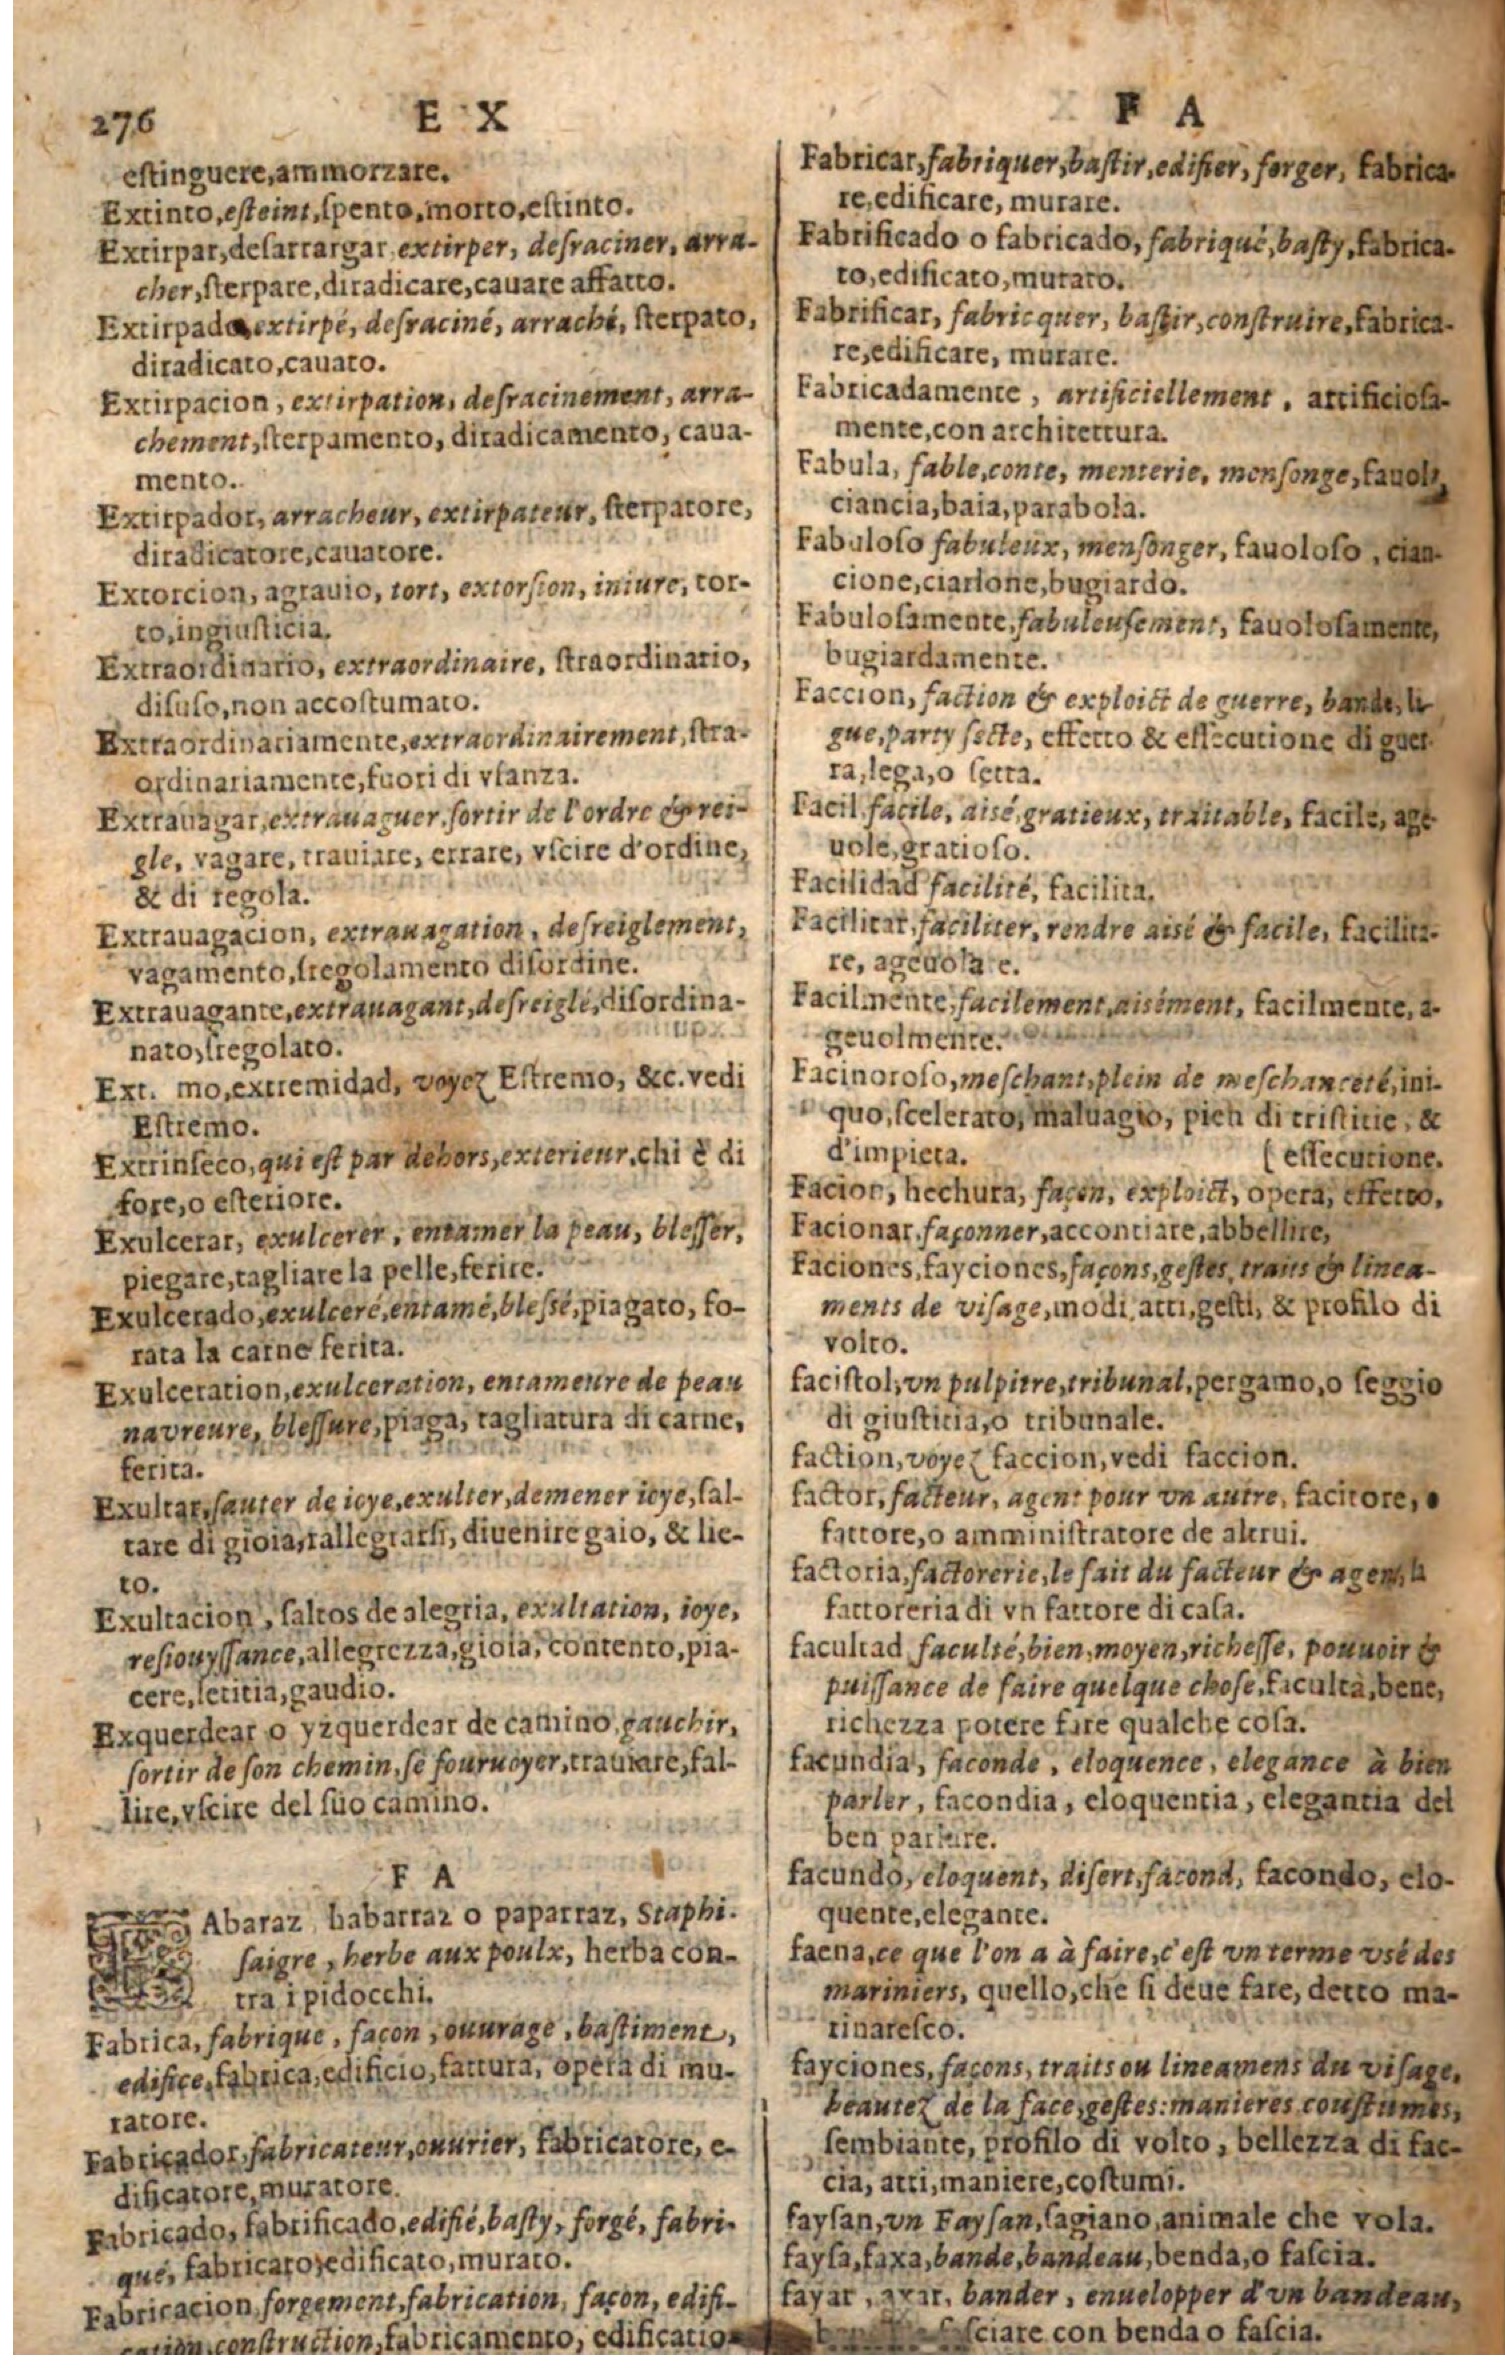 276
E X
eſtinguere,ammorzare.
Extinto,eſteint,ſpento,morto,eſtinto.
Extirpar,deſarrargar,extirper, deſraciner, arra-
cher,ſterpare,diradicare,cauare affatto.
Extirpado,extirpé, deſraciné, arraché, ſterpato,
diradicato,cauato.
Extirpacion, extirpation, deſracinement, arra-
chement,ſterpamento, diradicamento, caua-
mento.
Extirpador, arracheur, extirpateur, ſterpatore,
diradicatore,cauatore.
Extorcion, agrauio, tort, extorſion, iniure, tor-
to,ingiuſticia.
Extraordinario, extraordinaire, ſtraordinario,
diſuſo,non accoſtumato.
Extraordinariamente,extraordinairement,ſtra-
ordinariamente,fuori di vſanza.
Extrauagar,extrauaguer,ſortir de l'ordre & rei-
gle, vagare, trauiare, errare, vſcire d'ordine,
& di regola.
Extrauagacion, extrauagation, deſreiglement,
vagamento,ſregolamento diſordine.
Extrauagante,extrauagant,deſreiglé,diſordina-
nato,ſregolato.
Ext. mo,extremidad, voyez Eſtremo, &c. vedi
Eſtremo.
Extrinſeco,qui eſt par dehors,exterieur,chi è di
fore,o eſteriore.
Exulcerar, exulcerer, entamer la peau, bleſſer,
piegare,tagliare la pelle,ferire.
Exulcerado,exulceré,entamé,bleſſé,piagato, fo-
rata la carne ferita.
Exulceration,exulceration, entameure de peau
navreure, bleſſure,piaga, tagliatura di carne,
ferita.
Exultar,ſauter de ioye,exulter,demener ioye,ſal-
tare di gioia,rallegrarſi, diuenire gaio, & lie-
to.
Exultacion, ſaltos de alegria, exultation, ioye,
reſiouyſſance,allegrezza,gioia, contento,pia-
cere,letitia,gaudio.
Exquerdear o yzquerdear de camino,gauchir,
ſortir de ſon chemin,ſe fouruoyer,trauiare,fal-
lire,vſcire del ſuo camino.
F A
FAbaraz habarraz o paparraz, Staphi-
ſaigre, herbe aux poulx, herba con-
tra i pidocchi.
Fabrica, fabrique, façon, ouurage, baſtiment,
edifice,fabrica,edificio,fattura, opera di mu-
ratore.
Fabricador,fabricateur,ouurier, fabricatore, e-
dificatore,muratore.
Fabricado, fabrificado,edifié,baſty, forgé, fabri-
qué, fabricato,edificato,murato.
Fabricacion,forgement,fabrication, façon, edifi-
cation,construction,fabricamento, edificatio-
F A
Fabricar,fabriquer,baſtir,edifier, forger, fabrica-
re,edificare, murare.
Fabrificado o fabricado, fabriqué,baſty,fabrica-
to,edificato,murato.
Fabrificar, fabricquer, baſtir,conſtruire,fabrica-
re,edificare, murare.
Fabricadamente, artificiellement, artificioſa-
mente,con architettura.
Fabula, fable,conte, menterie, menſonge,fauola
ciancia,baia,parabola.
Fabuloſo fabuleux, menſonger, fauoloſo, cian-
cione,ciarlone,bugiardo.
Fabuloſamente,fabuleuſement, fauoloſamente,
bugiardamente.
Faccion, faction & exploict de guerre, bande, li-
gue,party ſecte, effetto & eſſecutione di guer-
ra,lega,o ſetta.
Facil,facile, aisé,gratieux, traitable, facile, age-
uole,gratioſo.
Facilidad facilité, facilita.
Facilitar,faciliter, rendre aisé & facile, facilita-
re, ageuolare.
Facilmente,facilement,aisément, facilmente, a-
geuolmente.
Facinoroſo,meſchant,plein de meſchanceté,ini-
quo,ſcelerato, maluagio, pien di triſtitie, &
d'impieta. [eſſecutione.
Facion, hechura, façon, exploict, opera, effetto,
Facionar,façonner,acconciare,abbellire,
Faciones,fayciones,façons,geſtes, traits & linea-
ments de viſage,modi,atti,geſti, & profilo di
volto.
faciſtol,vn pulpitre,tribunal,pergamo,o ſeggio
di giuſtitia,o tribunale.
faction,voyez faccion,vedi faccion.
factor,facteur, agent pour vn autre, facitore, o
fattore,o amminiſtratore de altrui.
factoria,factorerie,le fait du facteur & agent,la
fattoreria di vn fattore di caſa.
facultad faculté,bien,moyen,richeſſe, pouuoir &
puiſſance de faire quelque choſe,facultà,bene,
richezza potere fare qualche coſa.
facundia, faconde, eloquence, elegance à bien
parler, facondia, eloquentia, elegantia del
ben parlare.
facundo, eloquent, diſert,facond, facondo, elo-
quente,elegante.
faena,ce que l'on a à faire,c'eſt vn terme vsé des
mariniers, quello,che ſi deue fare, detto ma-
rinareſco.
fayciones, façons, traits ou lineamens du viſage,
beautez de la face,geſtes:manieres couſtumes,
ſembiante, profilo di volto, bellezza di fac-
cia, atti,maniere,coſtumi.
fayſan,vn Fayſan,fagiano,animale che vola.
fayſa,faxa,bande,bandeau,benda,o faſcia.
fayar, axar, bander, enuelopper d'vn bandeau,
faſciare con benda o faſcia.